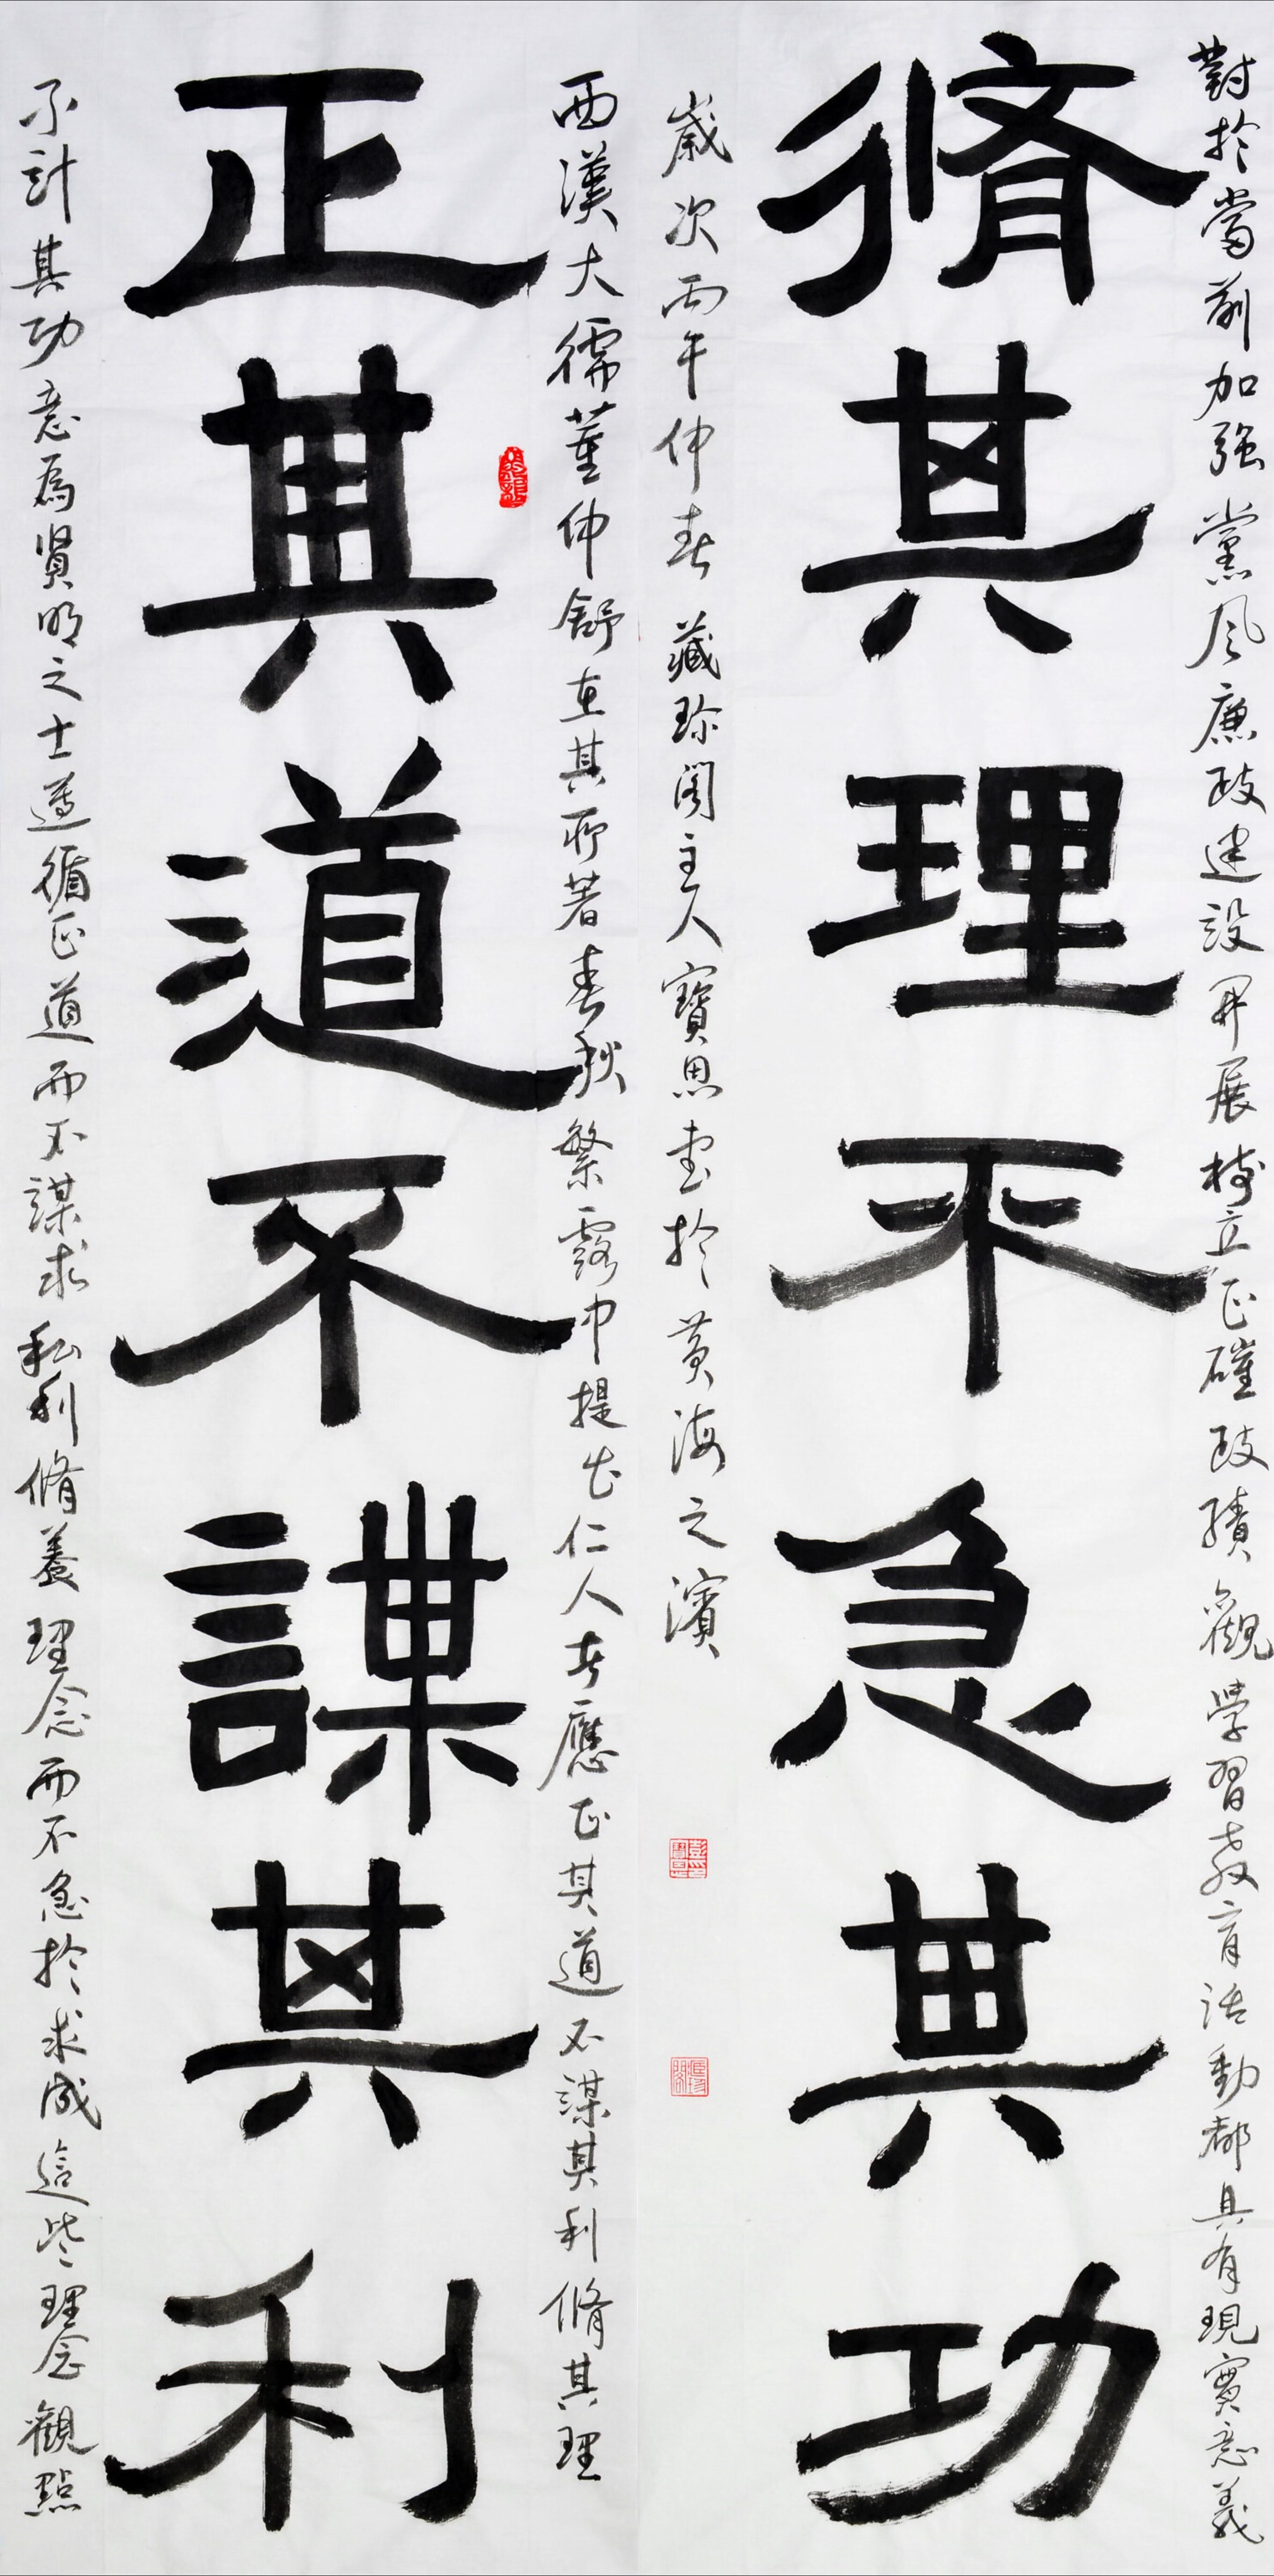 西漢大儒董仲舒在其所著春秋繁露中提出仁人者應正其道不謀其利脩其理
正其道不謀其利
不計其功意為賢明之士遵循正道而不謀求私利脩養理念而不急於求成這些理念觀點
對於當前加強黨風廉政建設開展樹立正確政績觀學習教育活動都具有現實意義
脩其理不急其功
歲次丙午仲春藏珍閣主人寶恩書於黃海之濱